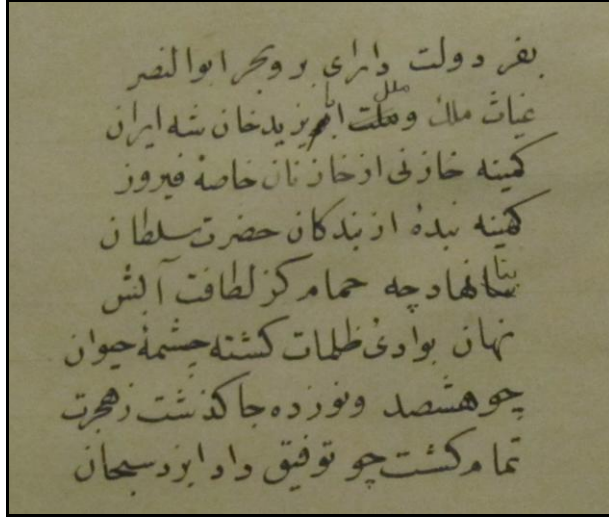 بفر دولت دارای بر و بحر ابوالنصر
غیاث ملک و ملت ملل بایزید خان شه ایران
کمینه خازنی از خازنان خاصهٔ فیروز
کمینه بندهٔ از بندکان حضرت سلطان
بنا نهاد چه حمام کز لطافت آبش
نهان بوادیٔ ظلمات کشته چشمهٔ حیوان
چو هشصد و نوزده جا کذشت ز هجرت
تمام کشت چو توفیق داد ایزد سبحان